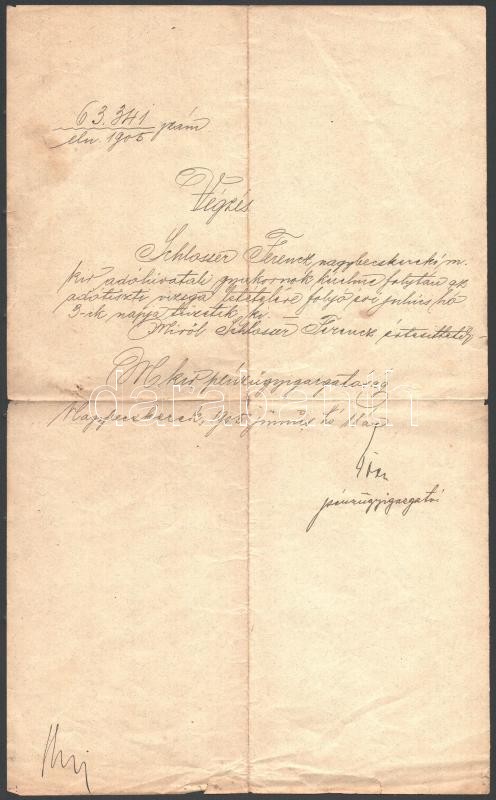 63.341 szám
eln. 1905
Végzés
Schlosser Ferencz nagybecskereki m.
kir adóhivatali gyakornok kérelme folytán az
adótiszti vizsga letételére folyó évi julius hó
3-ik napja tüzetik ki.
Miről Schlosser Ferencz értesittetik
M kir pénzügyigazgatóság
Nagybecskerek, 1905 junius hó 11 én
pénzügyigazgató
darabanth